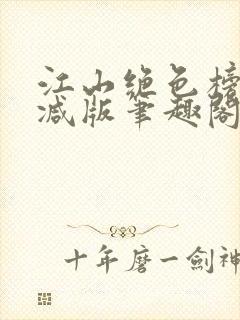 江山绝色榜
减版笔趣阁
十年磨一劍神